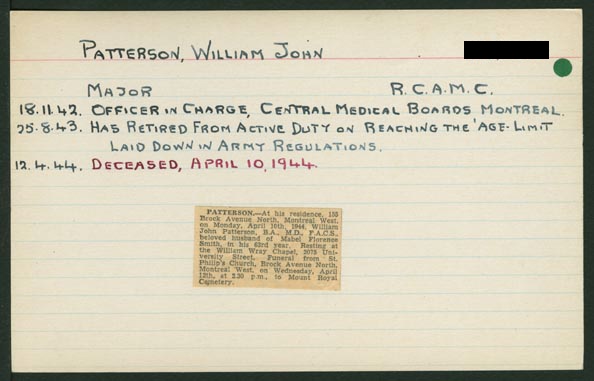 PATTERSON, WILLIAM JOHN
MAJOR R.C.A.M.C.
18.11.42. OFFICER IN CHARGE, CENTRAL MEDICAL BOARDS MONTREAL.
25.8.43. HAS RETIRED FROM ACTIVE DUTY ON REACHING THE AGE-LIMIT
LAID DOWN IN ARMY REGULATIONS.
12.4.44. DECEASED, APRIL 10, 1944.
PATTERSON.—At his residence, 155
Brock Avenue North, Montreal West,
on Monday, April 10th, 1944, William
John Patterson, B.A., M.D., F.A.C.S.,
beloved husband of Mabel Florence
Smith, in his 63rd year. Resting at
the William Wray Chapel, 2075 Uni-
versity Street. Funeral from St.
Philip's Church, Brock Avenue North,
Montreal West, on Wednesday, April
12th, at 2.30 p.m., to Mount Royal
Cemetery.